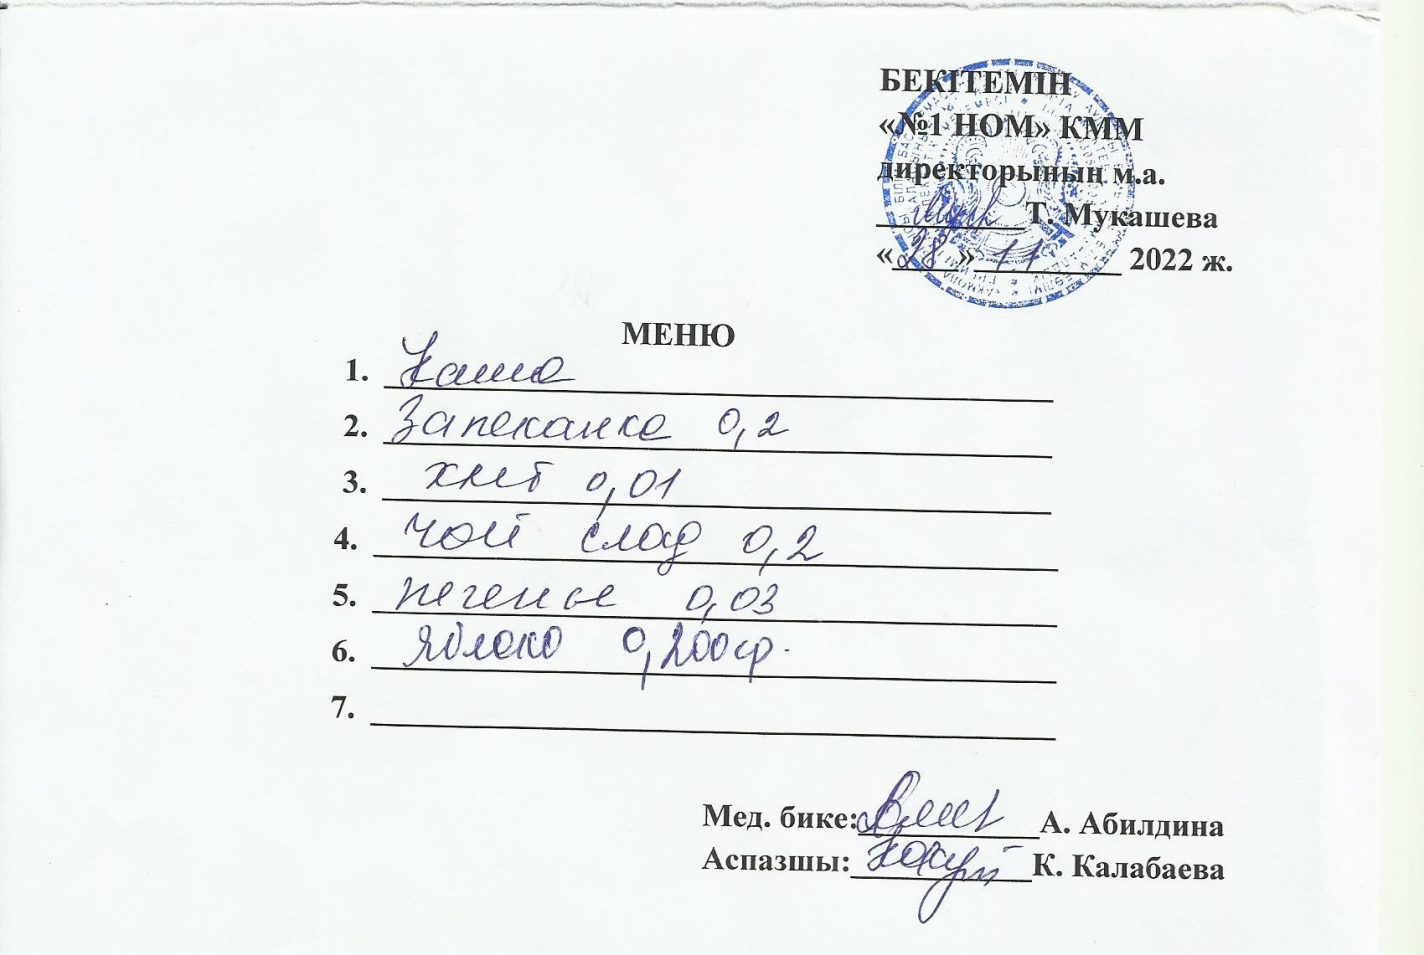 БЕКІТЕМІН
«№1 НОМ» КММ
директорының м.а.
Т. Мукашева
«28» 11 2022 ж.
МЕНЮ
1. Каша
2. Запеканка 0,2
3. хлеб 0,01
4. чай слад 0,2
5. печенье 0,03
6. яблоко 0,200гр.
7.
Мед. бике: А. Абилдина
Аспазшы: К. Калабаева